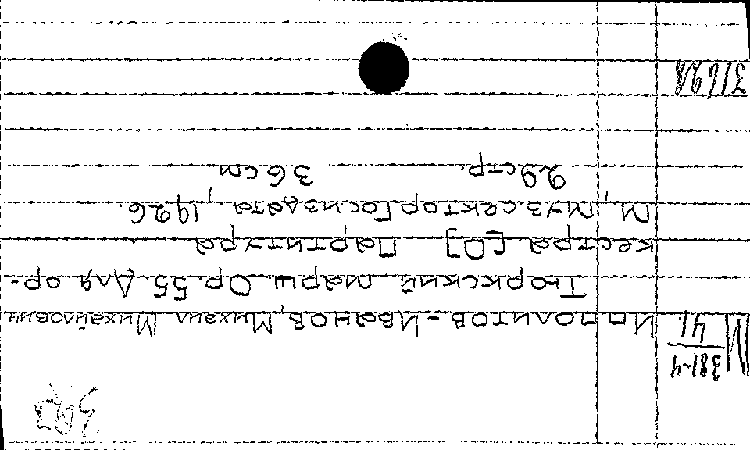 Ипполитов-Иванов, Михаил Михайлович
Тюркский марш Ор. 55 Для ор-
кестра [О] Партитура
М., Муз.сектор Госиздата, 1926.
29 стр. 36 см